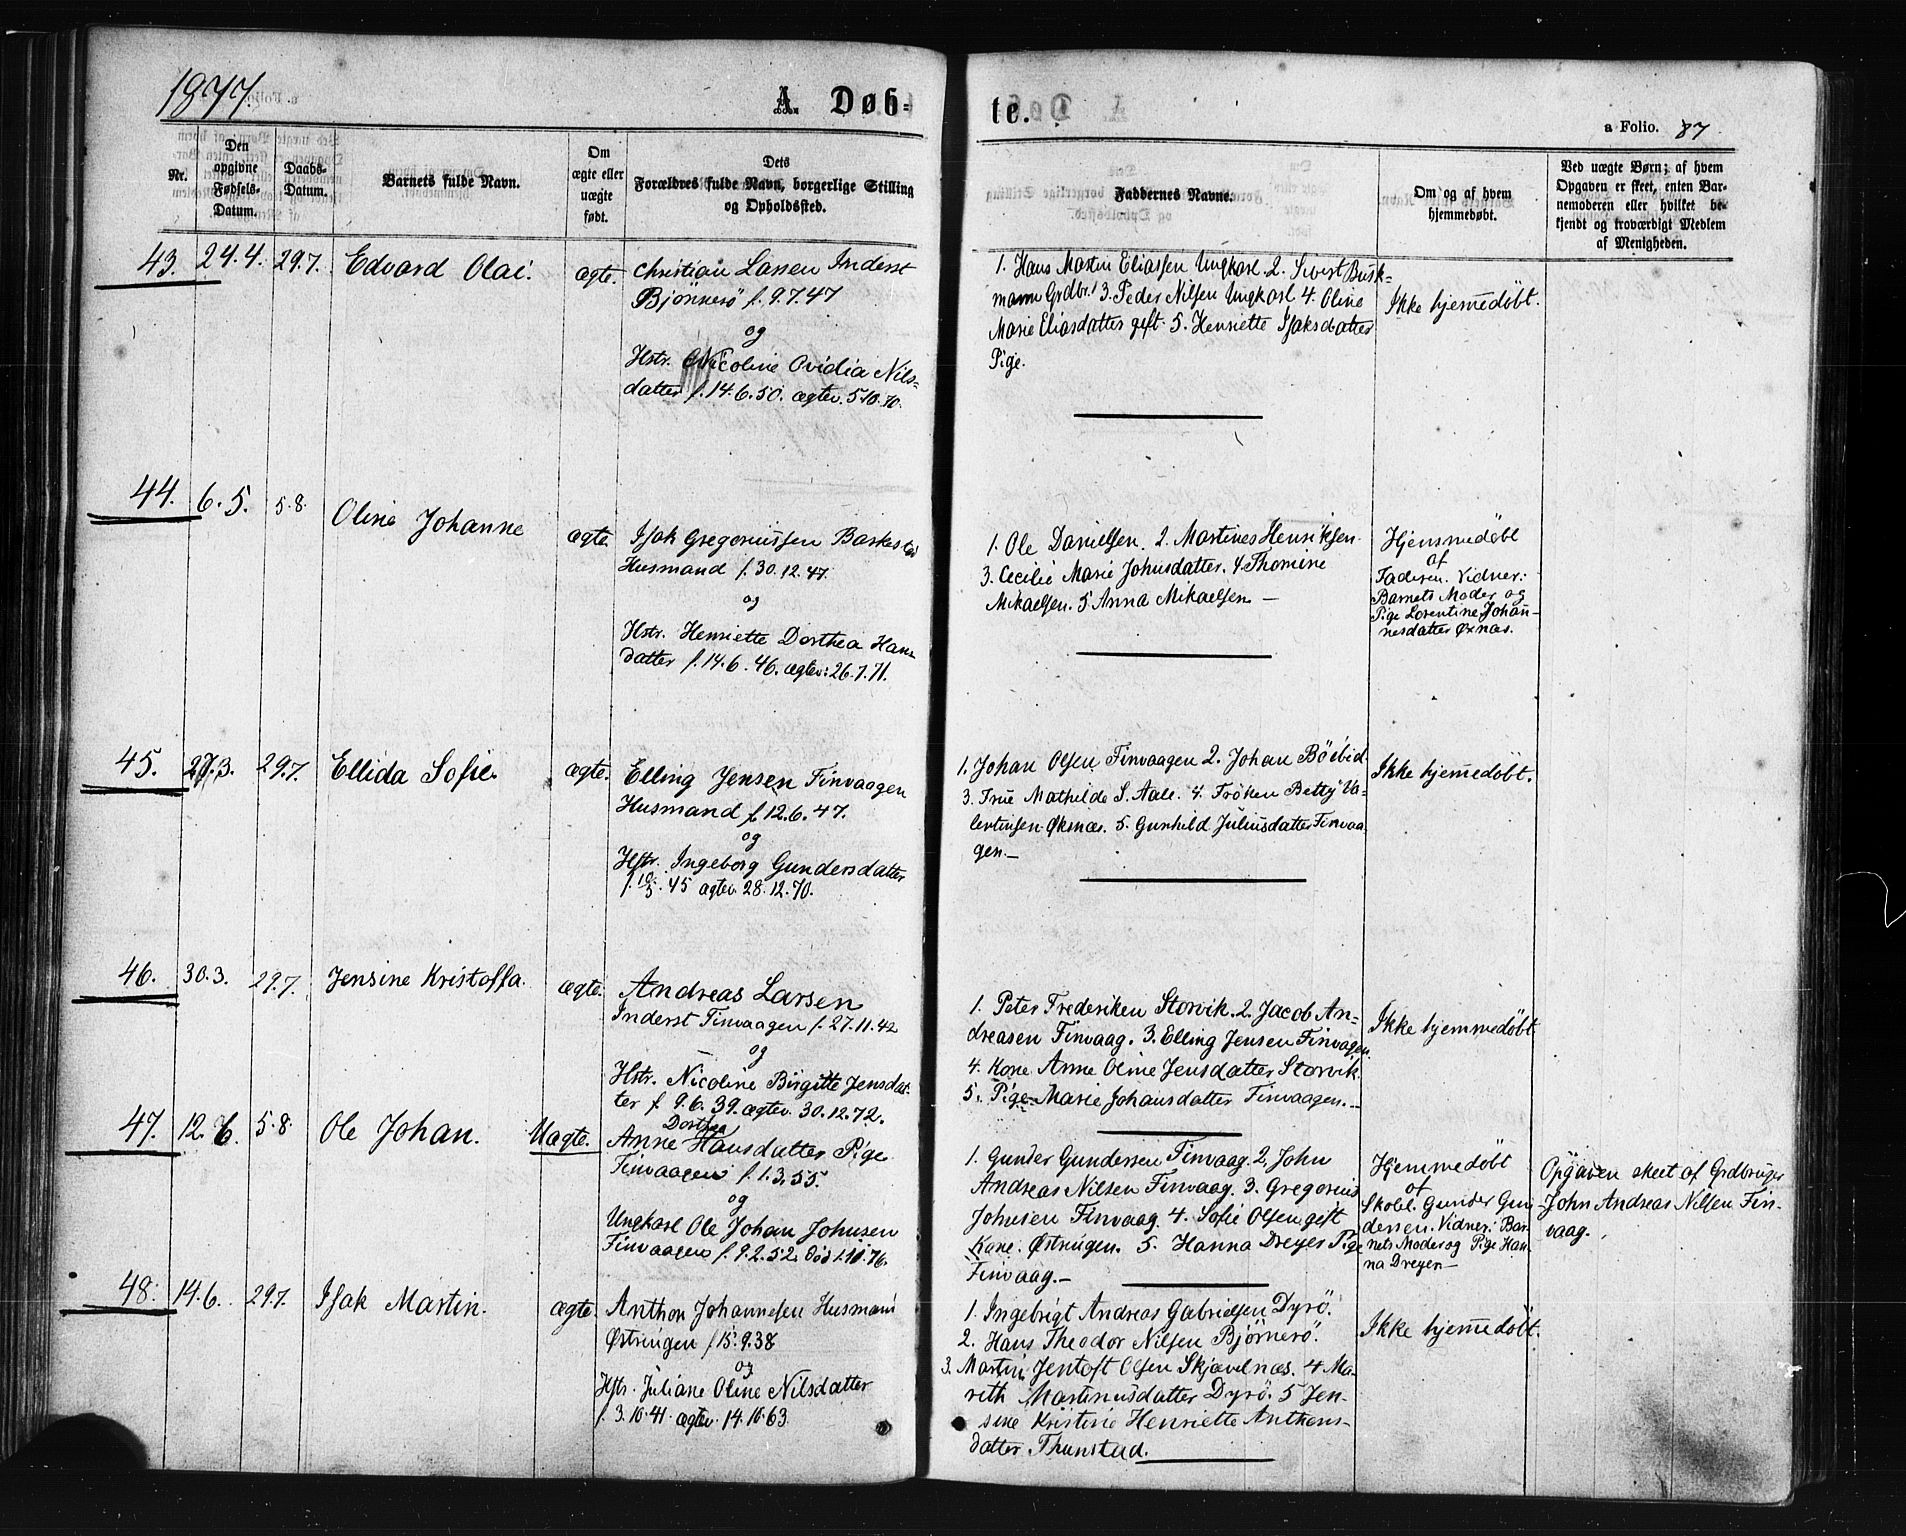 1877.
A. Døb-
te.
a Folio. 87
Nr.
Den opgivne Fødsels-Datum.
Daabs-Datum.
Barnets fulde Navn.
Om ægte eller uægte født.
Dets Forældres fulde Navn, borgerlige Stilling og Opholdssted.
Faddernes Navne.
Om og af hvem hjemmedøbt.
Ved uægte Børn; af hvem Opgaven er skeet, enten Barnemoderen eller hvilket bekjendt og troværdigt Medlem af Menigheden.
43. 24.4. 29.7. Edvard Olai. ægte.
Christian Larsen Inderst
Bjønnerö f. 9.7.47
og
Hstr. Nicoline Ovidia Nils-
datter f. 14.6.50. ægtev. 5.10.70.
1. Hans Martin Eliassen Ungkarl 2. Sivert Busk-
mann Grdbr. 3. Peder Nilsen Ungkarl 4. Oline
Marie Eliasdatter gift 5. Henriette Isaksdatter
Pige.
Ikke hjemedöbt.
44. 6.5. 5.8. Oline Johanne ægte.
Isak Gregoriussen Barkestad
Husmand f. 30.12.47.
og
Hstr. Henriette Dorthea Hans
datter f. 14.6.46. ægtev: 26.7.71.
1. Ole Danielsen. 2. Martines Henriksen.
3. Cecilie Marie Johnsdatter. 4. Thomine
Mikaelsen. 5 Anna Mikaelsen —
Hjemmedøbt
af
Faderen. Vidner:
Barnets Moder og
Pige Lorentine Johan-
nesdatter Øxnæs.
45. 27.3. 29.7. Ellida Sofie. ægte.
Elling Jensen Finvaagen
Husmand f. 12.6.47.
og
Hstr. Ingeborg Gundersdatter
f. 10/3. 45 ægtev. 28.12.70.
1. Johan Olsen Finvaagen 2. Johan
3. Frue Mathilde S. Aale. 4. Fröken Betty Va-
lentinsen Øksnæs. 5. Gunhild Juliusdatter Finvaa
gen.—
Ikke hjemedöbt.
46. 30.3. 29.7. Jensine Kristoffa. ægte.
Andreas Larsen
Inderst Finvaagen f. 27.11.42
og
Hstr. Nicoline Birgitte Jensdat-
ter f 9.6.39. ægtev. 30.12.72.
1. Peter Frederiken Storvik. 2. Jacob An-
dreasen Finvaag. 3. Elling Jensen Finvagen.
4. Kone Anne Oline Jensdatter Storvik.
5. Pige Marie Johansdatter Finvaagen.—
Ikke hjemmedöbt.
47. 12.6. 5.8. Ole Johan. Uægte.
Dorthea
Anne Hansdatter Pige
Finvaagen f. 1.3.55.
og
Ungkarl Ole Johan Johnsen
Finvaagen f. 9.2.52. död 1.11.76.
1. Gunder Gundersen Finvaag. 2. John
Andreas Nilsen Finvaag. 3. Gregorius
Johnsen Finvaag. 4. Sofie Olsen gift
Kone. Østringen. 5. Hanna Dreyer Pige
Finvaag.—
Hjemmedöbt
af
Skolel. Gunder Gun
dersen. Vidner: Bar-
nets Moder og Pige Han-
na Dreyer—
Opgaven skeet af Grdbruger
John Andreas Nilsen Fin-
vaag.
48. 14.6. 29.7. Isak Martin. ægte.
Anthon Johannesen Husmand
Østringen f 15.9.38
og
Hstr. Juliane Oline Nilsdatter
f. 3.10.41 ægtev. 14.10.63
1. Ingebrigt Andreas Gabrielsen Dyrö.
2. Hans Theodor Nilsen Bjørnerö.
3. Martin Jentoft Olsen Skjævelnæs. 4 Ma-
reth Martinusdatter Dyrö. 5 Jen-
sine Kristine Henriette Anthons-
datter Thunstad.
Ikke hjemedöbt.